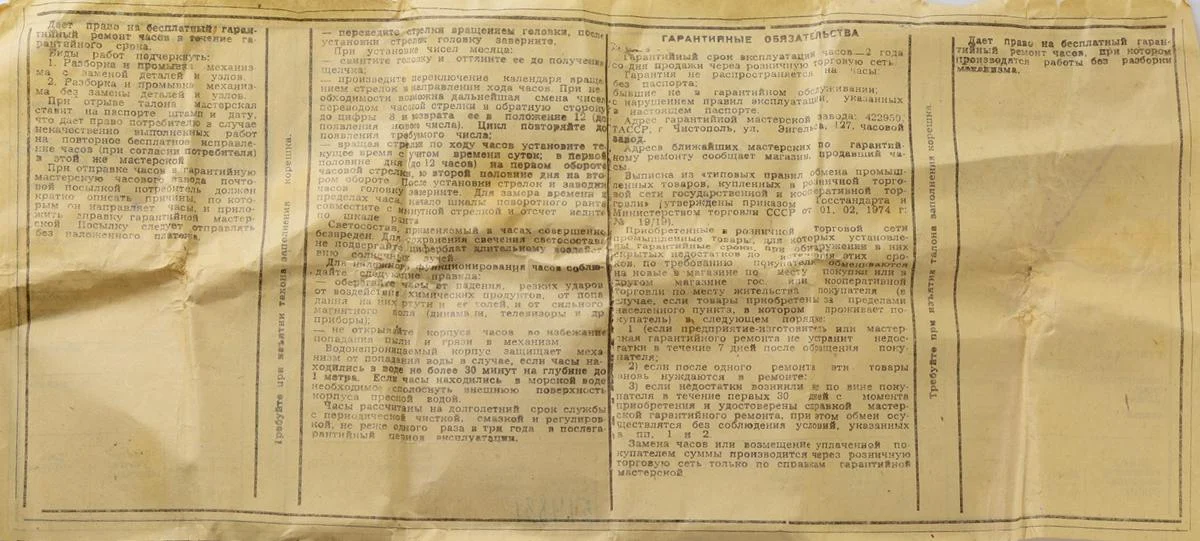 Дает право на бесплатный гаран-
тийный ремонт часов в течение га-
рантийного срока.
Виды работ подчеркнуть:
1. Разборка и промывка механиз-
ма с заменой деталей и узлов.
2. Разборка и промывка механиз-
ма без замены деталей и узлов.
При отрыве талона мастерская
ставит на паспорте штамп и дату,
что дает право потребителю в случае
некачественно выполненных работ
на повторное бесплатное исправле-
ние часов (при согласии потребителя)
в этой же мастерской
При отправке часов в гарантийную
мастерскую часового завода почто-
вой посылкой потребитель должен
кратко описать причины, по кото-
рым он направляет часы, и прило-
жить справку гарантийной мастер-
ской Посылку следует отправлять
без наложенного платежа.
Требуйте при изъятии талона заполнения корешка.
— переведите стрелки вращением головки, после
установки стрелок головку заверните.
При установке чисел месяца:
— свинтите головку и оттяните ее до получения
щелчка;
— произведите переключение календаря враще-
нием стрелок в направлении хода часов. При не-
обходимости возможна дальнейшая смена чисел
переводом часовой стрелки в обратную сторону
до цифры 8 и возврата ее в положение 12 (до
появления нового числа). Цикл повторяйте до
появления требуемого числа;
— вращая стрелки по ходу часов установите те-
кущее время с учетом времени суток; в первой
половине дня (до 12 часов) на первом обороте
часовой стрелки, во второй половине дня на вто-
ром обороте После установки стрелок и заводки
часов головку заверните. Для замера времени в
пределах часа, начало шкалы поворотного ранта
совместите с минутной стрелкой и отсчет ведите
по шкале ранта
Светосостав, применяемый в часах совершенно
безвреден. Для сохранения свечения светосостава
не подвергайте циферблат длительному воздейст-
вию солнечных лучей.
Для надежного функционирования часов соблю-
дайте следующие правила:
— оберегайте часы от падения, резких ударов
от воздействия химических продуктов, от попа
дания на них ртути и ее солей, и от сильного
магнитного поля (динамики, телевизоры и др
приборы);
— не открывайте корпуса часов во избежание
попадания пыли и грязи в механизм
Водонепроницаемый корпус защищает меха
низм от попадания воды в случае, если часы на-
ходились в воде не более 30 минут на глубине до
1 метра. Если часы находились в морской воде
необходимо сполоснуть внешнюю поверхность
корпуса пресной водой.
Часы рассчитаны на долголетний срок службы
с периодической чисткой, смазкой и регулиров-
кой, не реже одного раза в три года в послега-
рантийный период эксплуатации.
ГАРАНТИЙНЫЕ ОБЯЗАТЕЛЬСТВА
Гарантийный срок эксплуатации часов—2 года
со дня продажи через розничную торговую сеть
Гарантия не распространяется на часы:
без паспорта;
бывшие не в гарантийном обслуживании;
с нарушением правил эксплуатации, указанных
в настоящем паспорте
Адрес гарантийной мастерской завода: 422950,
ТАССР, г Чистополь, ул. Энгельса, 127, часовой
завод.
Адреса ближайших мастерских по гарантий-
ному ремонту сообщает магазин, продавший ча-
сы.
Выписка из «типовых правил обмена промыш-
ленных товаров, купленных в розничной торго-
вой сети государственной и кооперативной тор-
говли» (утверждены приказом Госстандарта и
Министерством торговли СССР от 01. 02. 1974 г:
№ 19/19).
Приобретенные в розничной торговой сети
промышленные товары, для которых установле-
ны гарантийные сроки, при обнаружении в них
скрытых недостатков до истечения этих сро-
ков, по требованию покупателя обмениваются
на новые в магазине по месту покупки или в
другом магазине гос. или кооперативной
торговли по месту жительства покупателя (в
случае, если товары приобретены за пределами
населенного пункта, в котором проживает по-
купатель) в следующем порядке:
1 (если предприятие-изготовитель или мастер-
ская гарантийного ремонта не устранит недос-
татки в течение 7 дней после обращения поку-
пателя;
2) если после одного ремонта эти товары
вновь нуждаются в ремонте:
3) если недостатки возникли не по вине поку-
пателя в течение первых 30 дней с момента
приобретения и удостоверены справкой мастер-
ской гарантийного ремонта, при этом обмен осу-
ществлятся без соблюдения условий, указанных
в пп. 1 и 2.
Замена часов или возмещение уплаченной по-
купателем суммы производится через розничную
торговую сеть только по справкам гарантийной
мастерской
Требуйте при изъятии талона заполнения корешка
Дает право на бесплатный гаран-
тийный ремонт часов, при котором
производятся работы без разборки
механизма.